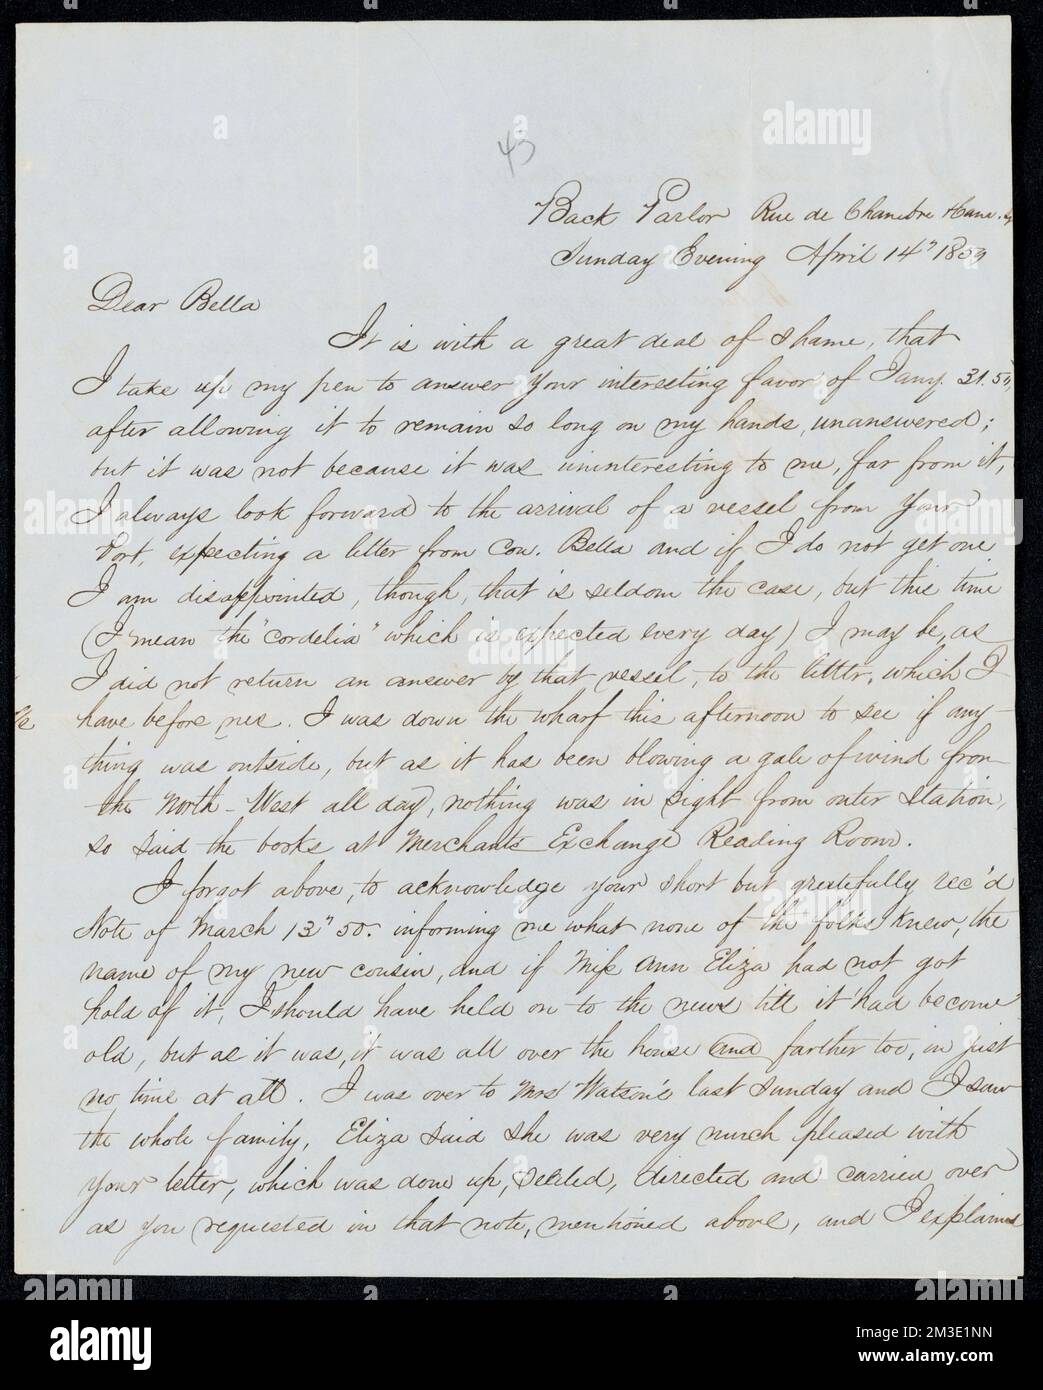 43
Back Parlor Rue de Chambre
Sunday Evening April 14" 1850
Dear Bella
It is with a great deal of shame, that
I take up my pen to answer your interesting favor of Jany. 31. 50,
after allowing it to remain so long on my hands, unanswered;
but it was not because it was uninteresting to me, far from it,
I always look forward to the arrival of a vessel from your
Port, expecting a letter from Cou. Bella and if I do not get one
I am disappointed, though, that is seldom the case, but this time
(I mean the "Cordelia" which is expected every day) I may be, as
I did not return an answer by that vessel, to the letter, which I
have before me. I was down the wharf this afternoon to see if any-
thing was outside, but as it has been blowing a gale of wind from
the North-West all day, nothing was in sight from outer Station,
so said the books at Merchants Exchange Reading Room.
I forgot above, to acknowledge your short but greatefully rec'd
Note of March 13" 50. informing me what none of the folks knew, the
name of my new cousin, and if Miss Ann Eliza had not got
hold of it, I should have held on to the news till it had become
old, but as it was, it was all over the house and farther too, in just
no time at all. I was over to Mrs Watson's last Sunday and I saw
the whole family, Eliza said she was very much pleased with
your letter, which was done up, sealed, directed and carried over
as you requested in that note, mentioned above, and I explained
alamy
Image ID: 2M3E1NN
www.alamy.com